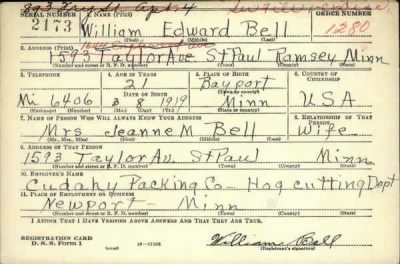 SERIAL NUMBER 1. NAME (Print) ORDER NUMBER
2173 William Edward Bell 1280
(First) (Middle) (Last)
2. ADDRESS (Print)
1593 Taylor Ave St Paul Ramsey Minn
(Number and street or R. F. D. number) (Town) (County) (State)
3. TELEPHONE 4. AGE IN YEARS 5. PLACE OF BIRTH 6. COUNTRY OF CITIZENSHIP
21 Bayport
DATE OF BIRTH (Town or county)
Mi 0406 3 8 1919 Minn USA
(Exchange) (Number) (Mo.) (Day) (Yr.) (State or country)
7. NAME OF PERSON WHO WILL ALWAYS KNOW YOUR ADDRESS 8. RELATIONSHIP OF THAT PERSON
Mrs Jeanne M Bell Wife
(Mr., Mrs., Miss) (First) (Middle) (Last)
9. ADDRESS OF THAT PERSON
1593 Taylor Av. St Paul Minn
(Number and street or R. F. D. number) (Town) (County) (State)
10. EMPLOYER'S NAME
Cudahy Packing Co Hog cutting Dept
11. PLACE OF EMPLOYMENT OR BUSINESS
Newport Minn
(Number and street or R. F. D. number) (Town) (County) (State)
I AFFIRM THAT I HAVE VERIFIED ABOVE ANSWERS AND THAT THEY ARE TRUE.
REGISTRATION CARD
D. S. S. Form 1 William Bell
(Registrant's signature)